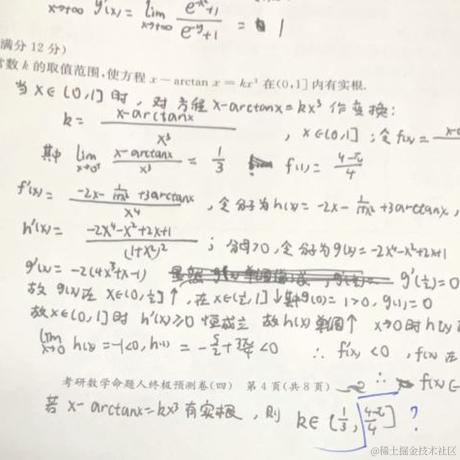 lim y'(x) = lim (e^-x+1)/(e^-y+1) = 1
x→+∞ x→+∞
满分 12 分)
常数 k 的取值范围,使方程 x − arctan x = kx³ 在(0,1] 内有实根.
当 x∈(0,1] 时, 对方程 x-arctanx=kx³ 作变换:
k = (x-arctanx)/x³ , x∈(0,1] ; 令 f(x) =
其中 lim x→0⁺ (x-arctanx)/x³ = 1/3 f(1) = (4-π)/4
f'(x) = (-2x - x/(1+x²) + 3arctanx)/x⁴ , 令分子为 h(x) = -2x - x/(1+x²) + 3arctanx,
h'(x) = (-2x⁴-x²+2x+1)/(1+x²)² ; 分母>0, 令分子为 g(x) = -2x⁴-x²+2x+1
g'(x) = -2(4x³+x-1) g'(½)=0
故 g(x) 在 x∈(0,½]↑, 在 x∈(½,1]↓ 其中 g(0)=1>0, g(1)=0
故 x∈(0,1] 时 h'(x)≥0 恒成立 故 h(x) 单调↑ x→0 时 h(x)
lim x→0 h(x) = -1<0, h(1) = -5/2 + 3π/4 <0 ∴ f'(x)<0, f(x) 在
考研数学命题人终极预测卷(四) 第 4 页(共 8 页) ∴ f(x)
若 x-arctanx=kx³ 有实根, 则 k∈(1/3, (4-π)/4] ?
@稀土掘金技术社区